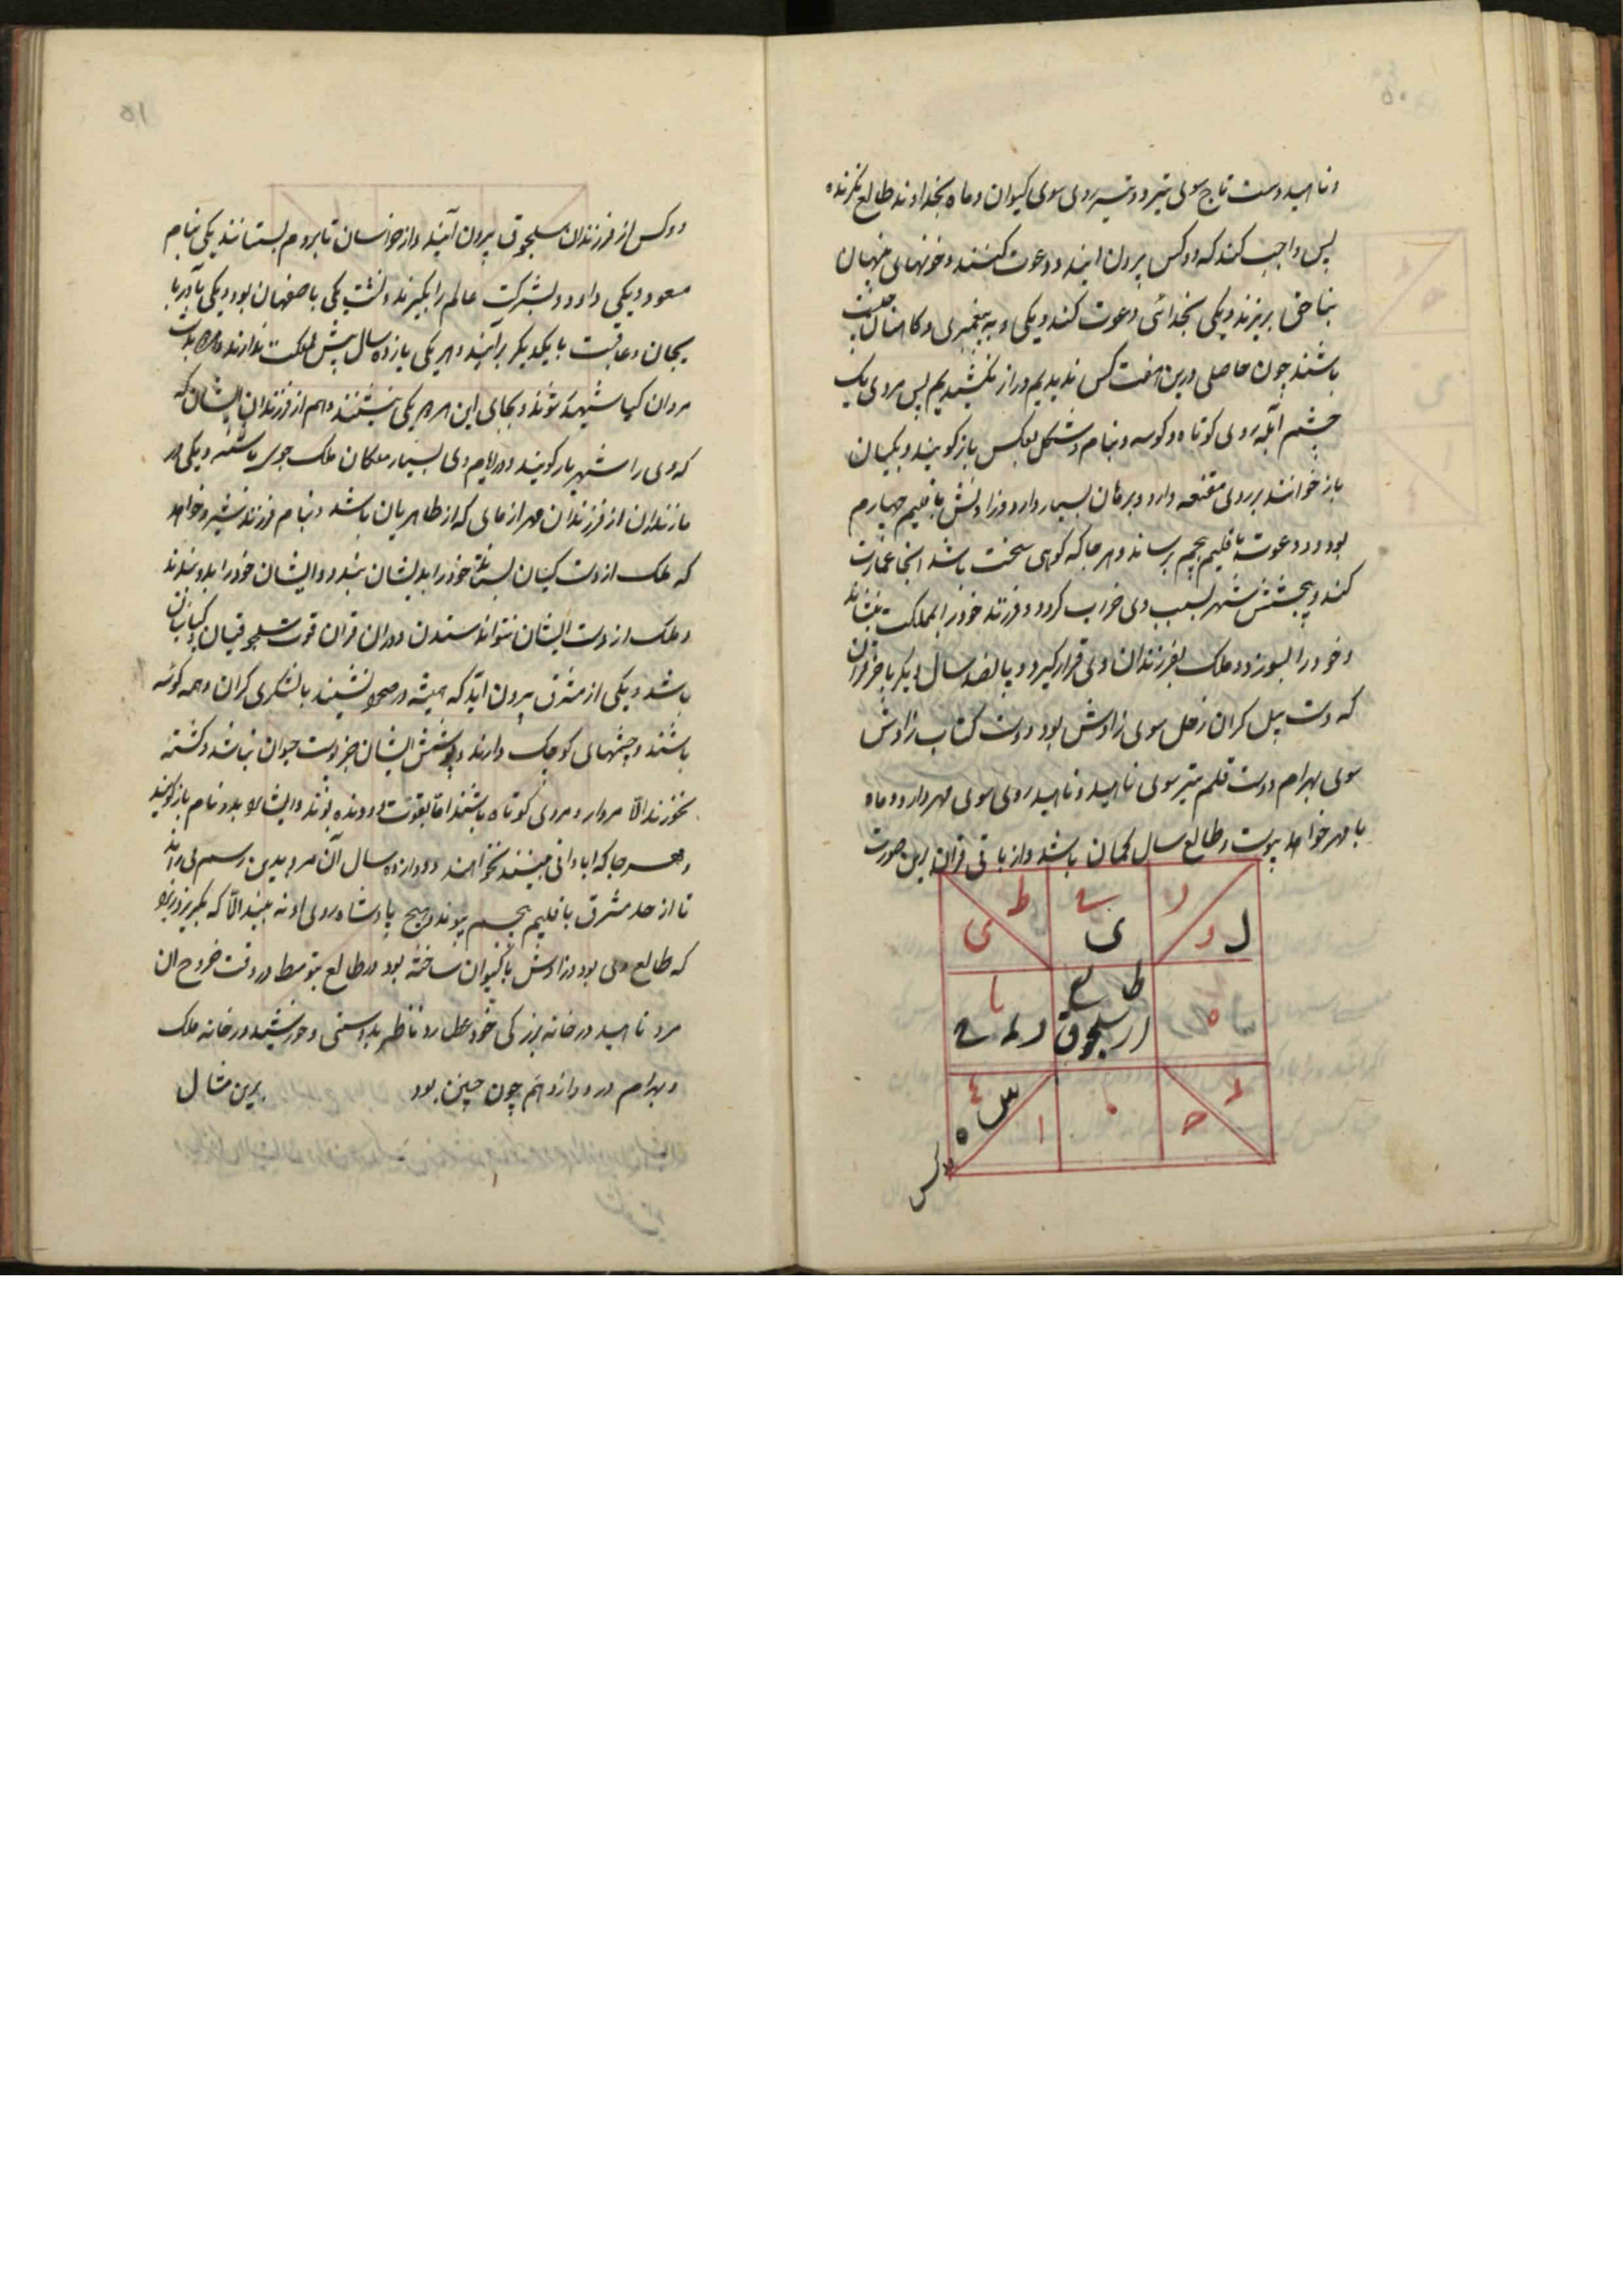 و ناهید دست تاج سوی تیر و تیر روی سوی کیوان و ماه بخداوند طالع نگرنده
پس واجب کند که دو کس بیرون ایند و دعوت کنند و خونهای پنهان
بناحق بریزند و یکی بخدائی دعوت کند و یکی به پیغمبری و کاهنان خبیث
باشند چون حاصلی درین هفت کس ندیدیم دراز نکشیدیم پس مردی یک
چشم آبله روی کوتاه و کوسه و بنام و شکل بعکس باز گویند و یکیان
باز خوانند بر روی مقنعه دارد و برهان بسیار دارد و زادنش باقلیم چهارم
بود و دعوت باقلیم پنجم برساند و هر جا که کوهی سخت باشد انجا عمارت
کند و پنج شش شهر بسبب وی خراب گردد و فرزند خود را بمملکت بنشاند
و خود را بسوزد و ملک بفرزندان وی قرار گیرد و پانصد سال دیگر باخر قران
که دست بیل کران زحل سوی زاوش بود و دست کتاب زاوش
سوی بهرام و دست قلم تیر سوی ناهید و ناهید روی سوی مهر دارد و ماه
با مهر خواهد پیوست و طالع سال کمان باشد و از باقی قران برین صورت
ط ی
ح ی
ر و ل
یا
طالع
ه
ار سلجوق
س ه
ا
دو کس
دو کس از فرزندان سلجوق بیرون آیند و از خراسان تا بروم بستانند یکی بنام
مسعود و یکی داود و بشرکت عالم را بگیرند و نشست یکی باصفهان بود و یکی بآذربا
یجان و عاقبت با یکدیگر برآیند و هر یکی یازده سال بیش مملکت ندارند
مردان کیا شهید شوند و بجای این هر دو یکی بنشینند و هم از فرزندان ایشان
که وی را شهریار گویند و در ایام وی بسیار ملکان ملک جوی باشند و یکی در
مازندران از فرزندان مهرازمای که از طاهریان باشد و بنام فرزند شیر و خواهد
که ملک از دست کیان بستاند خود را بدیشان بندد و ایشان خود را بدو بندند
و ملک از دست ایشان نتواند ستدن و در ان قران قوت سلجوقیان و کیانیان
باشد و یکی از مشرق بیرون آید که همیشه در صحرا نشیند با لشکری گران و همه کوسه
باشند و چشمهای کوچک دارند و پوشش ایشان جز پوست حیوان نباشد و کشته
نخورند الا مردار و مردی کوتاه باشند اما بقوت و دونده بوند و ایشان را بدو نام باز گویند
و هر جا که ابادانی بینند نخواهند و دوازده سال آن مرد بدین رسم می راند
تا از حد مشرق باقلیم پنجم پیوند و هیچ پادشاه روی او نه بیند الا که بگریزد
که طالع وی بود و زاوش با کیوان ساخته بود در طالع بتوسط در وقت خروج ان
مرد ناهید در خانه بزرگی خود عطارد ناظر بدوستی و خورشید در خانه ملک
و بهرام در دوازدهم چون چنین بود برین مثال